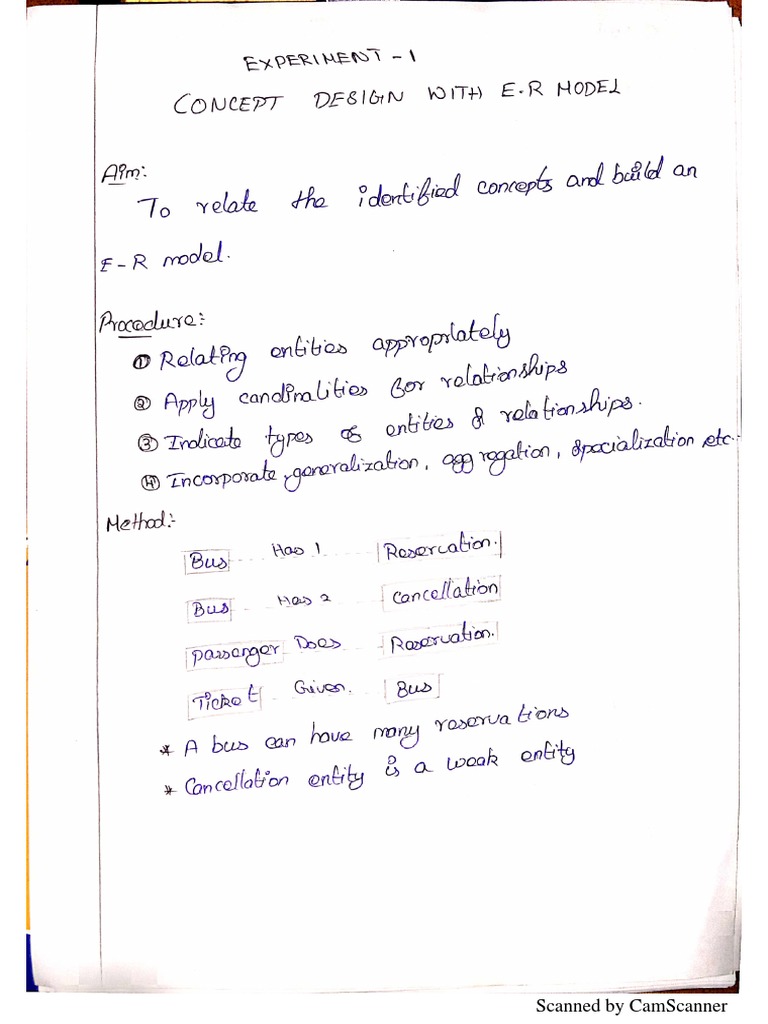 EXPERIMENT - 1
CONCEPT DESIGN WITH E.R MODEL
Aim:
To relate the identified concepts and build an
E-R model.
Procedure:
① Relating entities appropriately
② Apply candinalities for relationships
③ Indicate types of entities & relationships.
④ Incorporate, generalization, aggregation, specialization, etc..
Method:-
Bus Has 1 Reservation.
Bus Has 2 Cancellation
Passenger Does Reservation.
Ticket Given. Bus
* A bus can have many reservations
* Cancellation entity is a weak entity
Scanned by CamScanner